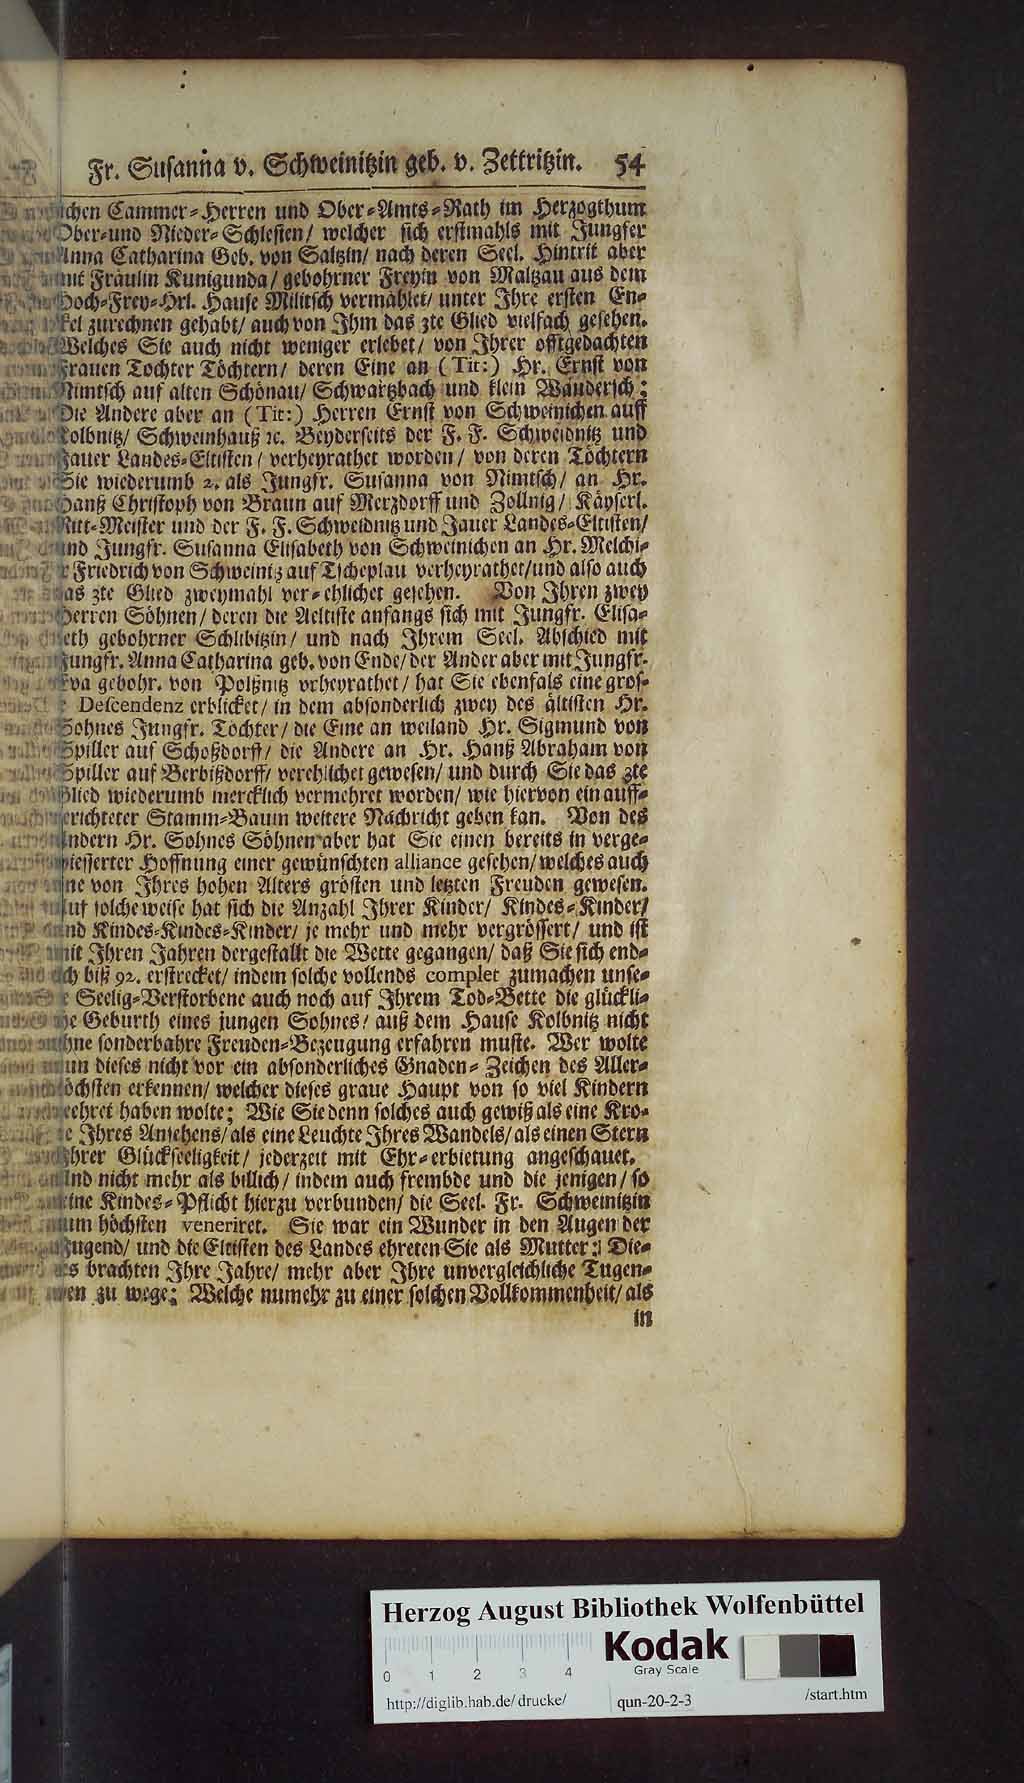 Fr. Susanna v. Schweinitzin geb. v. Zettritzin. 54
ichen Cammer-Herren und Ober-Amts-Rath im Herzogthum
Ober-und Nieder-Schlesien/ welcher sich erstmahls mit Jungfer
Anna Catharina Geb. von Saltzin/ nach deren Seel. Hintrit aber
mit Fräulin Kunigunda/ gebohrner Freyin von Maltzau aus dem
Hoch-Frey-Hrl. Hause Militsch vermählet/ unter Ihre ersten En-
kel zurechnen gehabt/ auch von Ihm das 3te Glied vielfach gesehen.
Welches Sie auch nicht weniger erlebet/ von Ihrer offtgedachten
Frauen Tochter Töchtern/ deren Eine an (Tit:) Hr. Ernst von
Nimtsch auf alten Schönau/ Schwartzbach und klein Wandersch;
Die Andere aber an (Tit:) Herren Ernst von Schweinichen auff
Kolbnitz/ Schweinhauß ꝛc. Beyderseits der F. F. Schweidnitz und
Jauer Landes-Eltisten/ verheyrathet worden/ von deren Töchtern
Sie wiederumb 2. als Jungfr. Susanna von Nimtsch/ an Hr.
Hanß Christoph von Braun auf Merzdorff und Zollnig/ Käyserl.
Ritt-Meister und der F. F. Schweidnitz und Jauer Landes-Eltisten/
und Jungfr. Susanna Elisabeth von Schweinichen an Hr. Melchi-
r Friedrich von Schweinitz auf Tscheplau verheyrathet/und also auch
as 3te Glied zweymahl ver-ehlichet gesehen. Von Ihren zwey
Herren Söhnen/ deren die Aeltiste anfangs sich mit Jungfr. Elisa-
eth gebohrner Schlibitzin/ und nach Ihrem Seel. Abschied mit
Jungfr. Anna Catharina geb. von Ende/ der Ander aber mit Jungfr.
Eva gebohr. von Poltznitz vrheyrathet/ hat Sie ebenfals eine gros-
e Descendenz erblicket/ in dem absonderlich zwey des ältisten Hr.
Sohnes Jungfr. Töchter/ die Eine an weiland Hr. Sigmund von
Spiller auf Schoßdorff/ die Andere an Hr. Hanß Abraham von
Spiller auf Berbißdorff/ verehlichet gewesen/ und durch Sie das 3te
Glied wiederumb mercklich vermehret worden/ wie hiervon ein auff-
erichteter Stamm-Baum weitere Nachricht geben kan. Von des
Andern Hr. Sohnes Söhnen aber hat Sie einen bereits in verge-
iesserter Hoffnung einer gewünschten alliance gesehen/ welches auch
ine von Ihres hohen Alters grösten und letzten Freuden gewesen.
Auf solche weise hat sich die Anzahl Ihrer Kinder/ Kindes-Kinder/
und Kindes-Kindes-Kinder/ je mehr und mehr vergrössert/ und ist
mit Ihren Jahren dergestallt die Wette gegangen/ daß Sie sich end-
ich biß 92. erstrecket/ indem solche vollends complet zumachen unse-
e Seelig-Verstorbene auch noch auf Ihrem Tod-Bette die glückli-
he Geburth eines jungen Sohnes/ auß dem Hause Kolbnitz nicht
hne sonderbahre Freuden-Bezeugung erfahren muste. Wer wolte
un dieses nicht vor ein absonderliches Gnaden-Zeichen des Aller-
öchsten erkennen/ welcher dieses graue Haupt von so viel Kindern
eehret haben wolte; Wie Sie denn solches auch gewiß als eine Kro-
e Ihres Ansehens/ als eine Leuchte Ihres Wandels/ als einen Stern
Ihrer Glückseeligkeit/ jederzeit mit Ehr-erbietung angeschauet.
Und nicht mehr als billich/ indem auch frembde und die jenigen/ so
eine Kindes-Pflicht hierzu verbunden/ die Seel. Fr. Schweinitzin
um höchsten veneriret. Sie war ein Wunder in den Augen der
Jugend/ und die Eltisten des Landes ehreten Sie als Mutter: Die-
s brachten Ihre Jahre/ mehr aber Ihre unvergleichliche Tugen-
en zu wege; Welche numehr zu einer solchen Vollkommenheit/ als
in
Herzog August Bibliothek Wolfenbüttel
Kodak
Gray Scale
0 1 2 3 4
http://diglib.hab.de/drucke/ qun-20-2-3 /start.htm